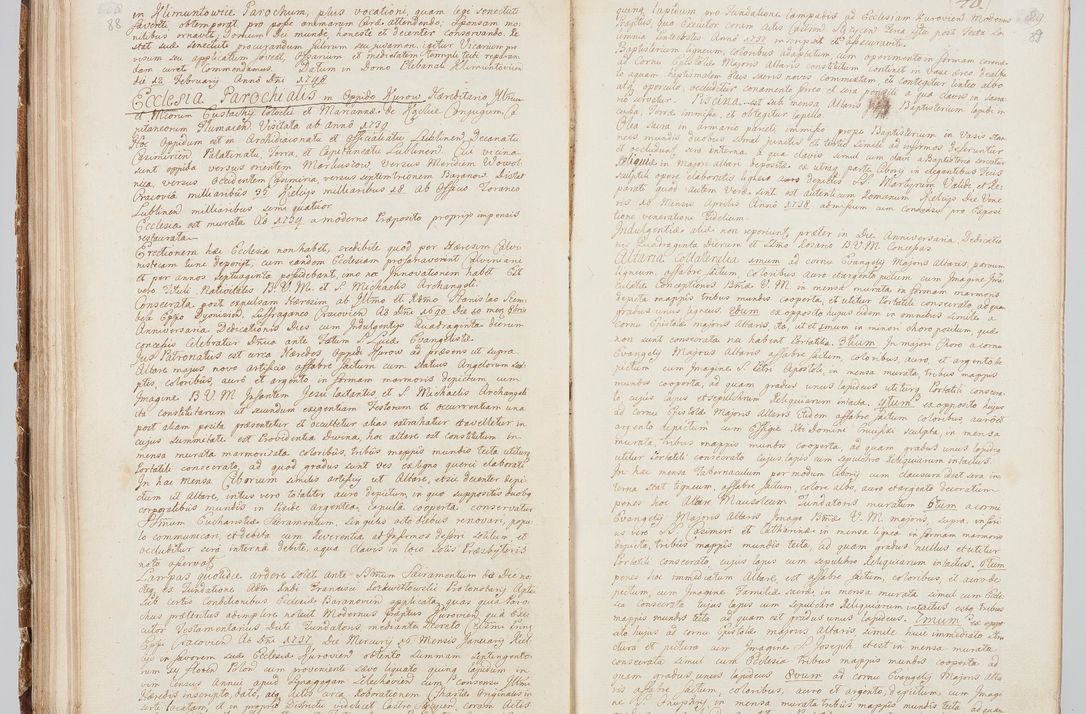 88
in Klimuntowice Parochum, plus vocatione, quam legi senectuti
favorti obtemporat, pro posse animarum Curæ attendendo; Sponsam mo-
nilibus ornavit, Domum Dei munde, honeste et decenter conservando. Ve
stat sua senectute procurandum
visum seu applicatum foveat, Ossarium ex medietate, templi tecti reparan-
dam curet Commendamus. Datum in Domo Plebanali Klimuntovien
die 12 February Anno Dni 1748
Ecclesia Parochialis in Oppido Kurow Hæreditario Illmor
et Mtcorum Eustachy Potocki et Mariannæ de Kątskie Conjugum, Ca
pitaneorum Tlumacen. Visitata ab anno 1739
Hoc Oppidum est in Archidiaconatu et Officialatu Lublinen Decanatu
Casimirien Palatinatu, Terra, et Capitaneatu Lublinen. Cui vicina
sunt oppida versus orientem Markuszow, versus Meridiem Wąwol-
nica, versus Occidentem Casimiria, versus septemtrionem Baranow. Distat
Cracovia milliaribus 35 Kielijs milliaribus 18 ab Officio Foraneo
Lublinen milliaribus semi quatuor.
Ecclesia est murata Ao 1754 a moderno Præposito proprijs impensis
restaurata.
Erectionem hæc Ecclesia non habet, credibile quod per Hæresim Calvi
nisticam tunc deperijt, cum eandem Ecclesiam profanaverint Calviniani
et per annos septuaginta possidebant, imo nec Innovationem habet. Est
vero Tituli Nativitatis B. V. M. et S. Michaelis Archangeli
Consecrata post expulsam Hæresim ab Illmo et Rdmo Stanislao Szem
bek Eppo Dyonisien, Suffraganeo Cracovien Ao Dni 1690 Die 10 mens 8bris
Anniversaria Dedicationis Dies cum Indulgentijs Quadraginta dierum
concessis celebratur Dnica ante Festum S. Lucæ Evangelistæ
Jus Patronatus est circa Hæredes Oppidi Kurow ad præsens ut supra.
Altare majus novo artificio affabre factum cum statuis Angelorum scul
ptis, coloribus, auro et argento in formam marmoris depictum cum
Imagine B V M Infantem Jesu lactantis, et S. Michaelis Archangeli
ita constitutarum ut secundum exigentiam Festorum et occurrentiam una
post aliam posita præsentetur et occultetur alias extrahatur et avelletur in
cujus summitate est Providentia Divina, hoc altare est constitutum in
mensa murata marmorizata coloribus, tribus mappis mundis tecta utitur
Portatili consecrato, ad quod gradus sunt tres ex ligno querci elaborati
In hac Mensa Ciborium similis artificij ut Altare, etsic decenter depi-
ctum ut Altare, intus vero totaliter auro depictum, in quo suppositis duobus
corporalibus mundis in Pixide argentea, cupula cooperta conservatur
SSmum Eucharistiæ Sacramentum, singulis octo diebus renovari, popu
lo communicari, et debita cum Reverentia ad Infirmos deferri solitum, et
occluditur sera interna debite, aqua clavis in loco solis Presbyteris
noto asservat.
Lampas quotidie ardere solet ante SSmum Sacramentum die Dec no-
cteq ex Fundatione Adm Rndi Francisci Lorawittowski Protonotary Aplici
sub certis Conditionibus Ecclesiæ Baranovien applicata, quas quia Paro-
chus prætentus adimplere noluit Modernus Præptus Kurovien, qua Exe
cutor Testamentarius Dicti Fundatoris, mediante Decreto Celsmi Princ
Eppi Cracovien Ao Dni 1737. Die Mercury 16 Mensis January Recl
ijs in favorem suæ Ecclesiæ Kurovien obtento summam Septingento-
rum seu floren Polon cum proveniente salvo liquato quinq lapidum in
vim census Annui apud Synagogam Zelechovien cum Consensu Illmi
Hæredis inscripto, dato, atq dictis circa Roborationem Chartæ Originalis in
scrte locatam, et in proprio Districtu videlicet Castro Stężycen, coram dictis
89
quinq lapidum pro Fundatione lampadis ad Ecclesiam Kurovien Modernus
Præptus, qua Executor coram Actis Castren Stęzycen Feria 6ta post Festa Lu
omnia intabestis Anno 1737 inscripsit et assecuravit.
Baptisterium ligneum, coloribus adaptatum, cum operimento in formam coronæ
ad Cornu Epistolæ Majoris Altaris constitutum Continet in Vase æreo dealba
to aquam baptismalem oleis sacris novis commixtam, et contegitur linteo albo
atq operculo, occluditur conamento sæpe et sera pensili a qua clavis in sacra
rio servatur. Piscina est sub mensa Altaris Baptisterium lapidi in
cussa, terra immissa, et obtegitur lapillo.
Olea Sacra in armario parieti immisso prope Baptisterium in Vasis Stan
neis mundis duobus simul junctis et tertio simili ad infirmos deferuntur
et occluduntur sera interna a qua clavis simul cum clavi a Baptisterio servatur
Reliquiæ in Majori Altari depositæ ex utraq parte Cibory in elegantibus Thecis
sculptili opere elaboratis ligneis auro depictis SS. Martyrum Validæ, et Se
parati quod autem veræ sint est autenticum Romanum Kielijs Die Vene
ris 18 Mensis Aprilis Anno 1738 admissum cum Consensu pro Exposi
tione veneratione Fidelium.
Indulgentiæ aliæ non reperiunt, præter in Die Anniversaria Dedicatio
nis Quadraginta Dierum et SSmo Rosario B.V.M. Concessas
Altaria Collateralia 1mum ad cornu Evangely Majoris Altaris, parvum
ligneum, affabre factum, coloribus auro et argento pictum, cum Imagine Im̃a
culatæ Conceptionis Btæ V. M. in mensa murata in formam marmoris
depicta mappis tribus mundis cooperta, et utitur Portatili consecrato, ad quam
gradus unus ligneus. 2dum ex opposito hujus eidem in omnibus simile a
cornu Epistolæ majoris Altaris, ita, ut et 1mum in minori choro positum, quæ
non sunt consecrata nec habent Portatilia. 3tium In majori Choro a cornu
Evangely Majoris Altaris affabre factum, coloribus, auro, et argento de
pictum cum Imagine S. Petri Apostoli, in mensa murata, tribus mappis
mundis cooperta, ad quam gradus unus lapideus utitur Portatili consecra-
to, cujus lapis et sepulchrum Reliquiarum intacta. 4tum ex opposito hujus
ad cornu Epistolæ Majoris Altaris Eidem affabre factum Coloribus, auro et
argento depictum cum Effigie Xti Domini Crucifixi sculpta, in mensa
murata, tribus mappis mundis cooperta, ad quam gradus unus lapideus
utitur Portatili consecrato cujus lapis cum sepulchro Reliquiarum intactus.
In hac mensa Tabernaculum per modum Cibory cum clausura idest sera in-
terna stat ligneum, affabre factum, colore albo, auro et argento decoratum
penes hoc Altare Mausoleum Fundatoris muratum 5tum a cornu
Evangely Majoris Altaris Imago Btæ V. M. majoris, supra, inferi
us vero S. Casimiri et Catharinæ in mensa lignea in formam marmoris
depicta, tribus mappis mundis tecta, ad quam gradus nullus et utitur
Portatili consecrato, cujus lapis cum sepulchro Reliquiarum intactus. 6tum
penes hoc immediatum Altare, est affabre factum, coloribus, et auro de
pictum, cum Imagine Familiæ Sacræ, in mensa murata simul cum Eccle-
sia consecrata cujus lapis cum sepulchro Reliquiarum intactus estq tribus
mappis mundis tecta, ad quam est gradus unus lapideus. 7mum ex oppo-
sito hujus ad cornu Epistolæ majoris Altaris simile huic immediato stru
ctura et pictura cum Imagine S. Joseph et est in mensa murata
consecrata simul cum Ecclesia tribus mappis mundis cooperta ad
quam gradus unus lapideus 8vum ad cornu Evangely Majoris Alta
ris affabre factum, coloribus, auro et argento, depictum, cum Imagi
ne S. Onuphry in mensa murata tribus mappis mundis tecta ad quam